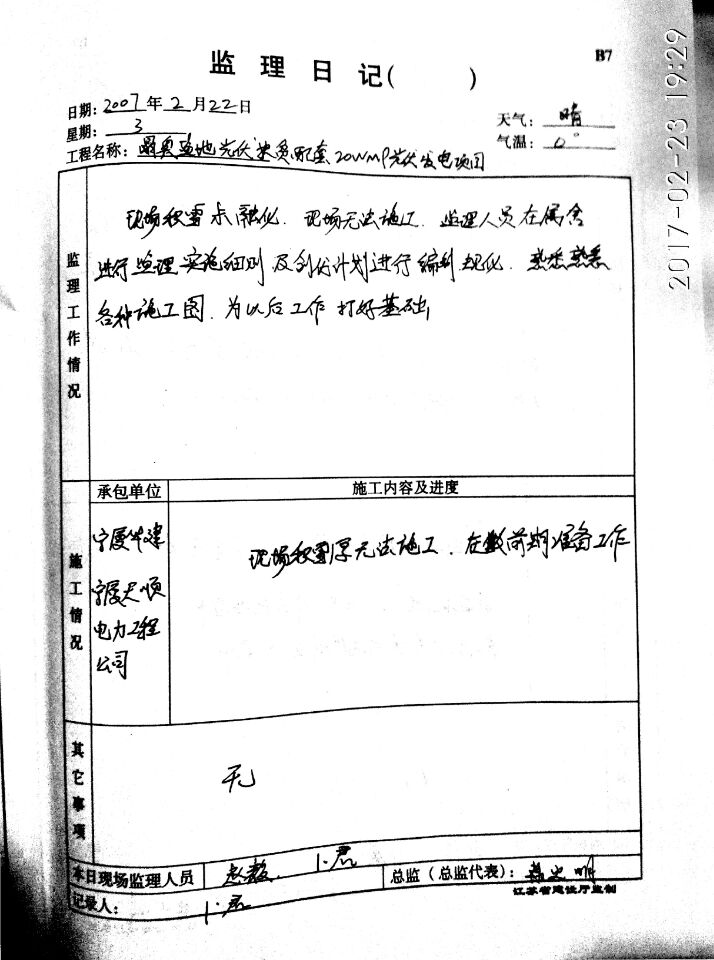 B7
监理日记( )
日期: 2007年2月22日
星期: 3
天气: 晴
气温: 0°
工程名称: 光伏 配套20WMP光伏发电项目
现场积雪未融化. 现场无法施工. 监理人员在宿舍
进行监理实施细则及 计划进行编制 . 熟悉熟悉
各种施工图. 为以后工作打好基础
监理工作情况
承包单位
施工内容及进度
施工情况
宁夏 建
宁夏天顺
电力工程
公司
现场积雪厚无法施工. 在做前期准备工作
其它事项
无
本日现场监理人员
总监(总监代表):
记录人:
江苏省建设厅监制
2017-02-23 19:29